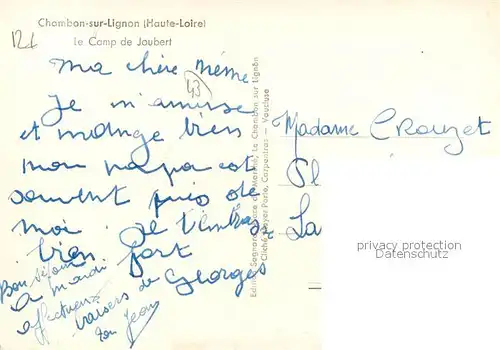 Chambon-sur-Lignon (Haute-Loire)
Le Camp de Joubert
121
43
Ma chère Mémé
Je m'amuse
et mange bien
mon papa est
souvent près de
moi. Je t'embrasse
bien fort
Georges
Bon séjour
à mardi
affectueux
baisers de
ton Jean
Madame Crouzet
Pl
La
Cliché Meyer Paris, Carpentras - Vaucluse
privacy protection
Datenschutz